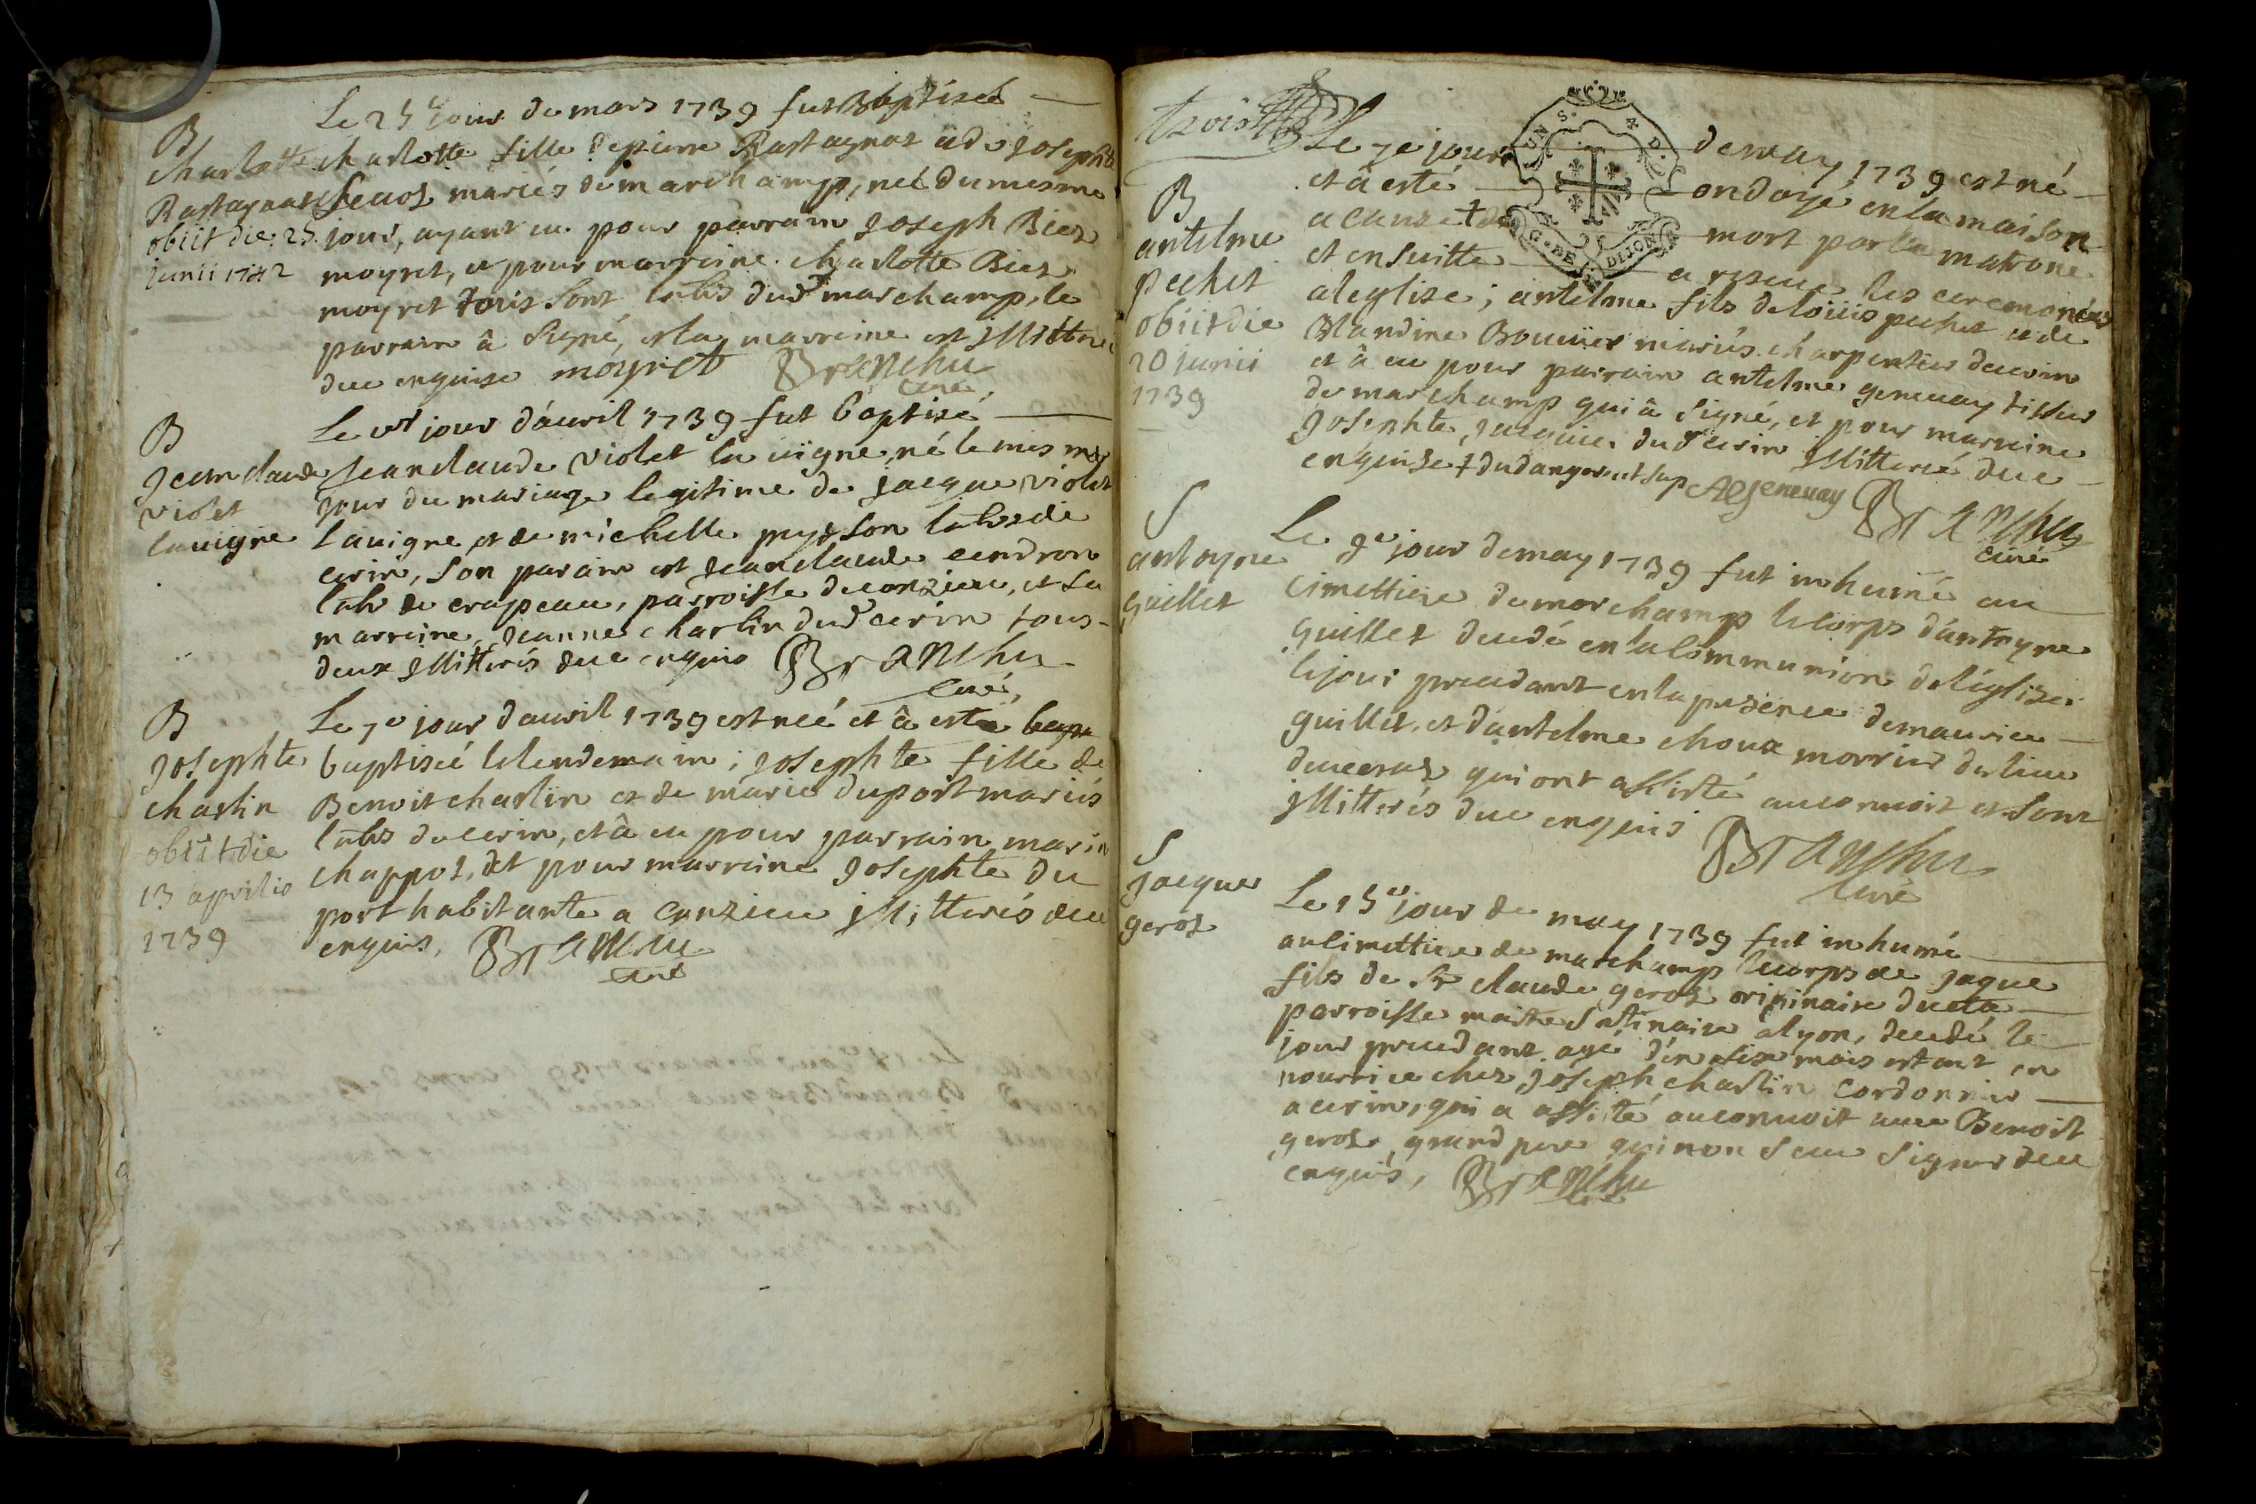 Le 25e jour de mars 1739 fut Baptiseé
B
Charlotte
Rastagnat
obiit die 25
junii 1742
charlotte fille de pierre Rastagnat et de josephte
mariés de marchamp, neé du mesme
jour, ayant eu pour parrain joseph Biez
moyret, et pour marreine charlotte Biez
moyret tous sont labts dudt marchamp, le
parrain â signé, et la marreine est jllittereé
due enquise moyret Branchu
curé
B
jean claude
violet
lavigne
Le 1er jour d'auril 1739 fut baptizé
jean claude violet la uigne né le mesme
jour du mariage legitime de jacque violet
lauigne et de michelle son labts de
cerin, son parain est jean claude cendron
labt de crapeau, parroisse de conzieu, et sa
marreine jeanne charlin dudt cerin tous
deux jllitterés due enquis Branchu
curé
B
josephte
charlin
obiit die
13 aprilis
1739
Le 7e jour dauril 1739 est neé et â esteé
baptiseé lelendemain; josephte fille de
Benoit charlin et de marie duport mariés
labts de cerin, et â eu pour parrain marin
chappot, et pour marreine josephte du
port habitante a Conzieu jllitterés due
enquis, Branchu
curé
trois
Le 7e jour de may 1739 est né
UN S. 4 D.
G. DE DIJON
et â esté ondoyé en la maison
a cause + de mort par la matrone
et ensuitte a receue les ceremonies
B
antelme
pechet
obiit die
20 junii
1739
a leglize; antelme fils de loüis pechet et de
Blandine Bouuier mariés charpentier de cerin
et â eu pour parrain antelme geneuay tissier
de marchamp qui â signé, et pour marreine
josephte jacquier dudt cerin jllittereé due
enquise + du danger ut sup Algeneuay Branchu
curé
S
antoyne
guillet
Le 9e jour de may 1739 fut inhumé au
cimettiere de marchamp le corps d'antoyne
guillet decedé en la communion de l'églize
le jour precedant en la presence de maurice
guillet, et d'antelme choux morrier de lieu
qui ont assisté au conuoit et sont
jllitterés due enquis Branchu
curé
S
jacque
geroz
Le 15e jour de may 1739 fut inhumé
au cimettiere de marchamp le corps de jaque
fils de Sr claude geroz originaire de cette
parroisse maitre satinaire a lyon, decedé le
jour precedant agé d'en six mois estant en
nourrice chez joseph charlin cordonnier
a cerin, qui a assisté au conuoit auec Benoit
geroz grand pere qui n'on sceu signer due
enquis, Branchu
curé